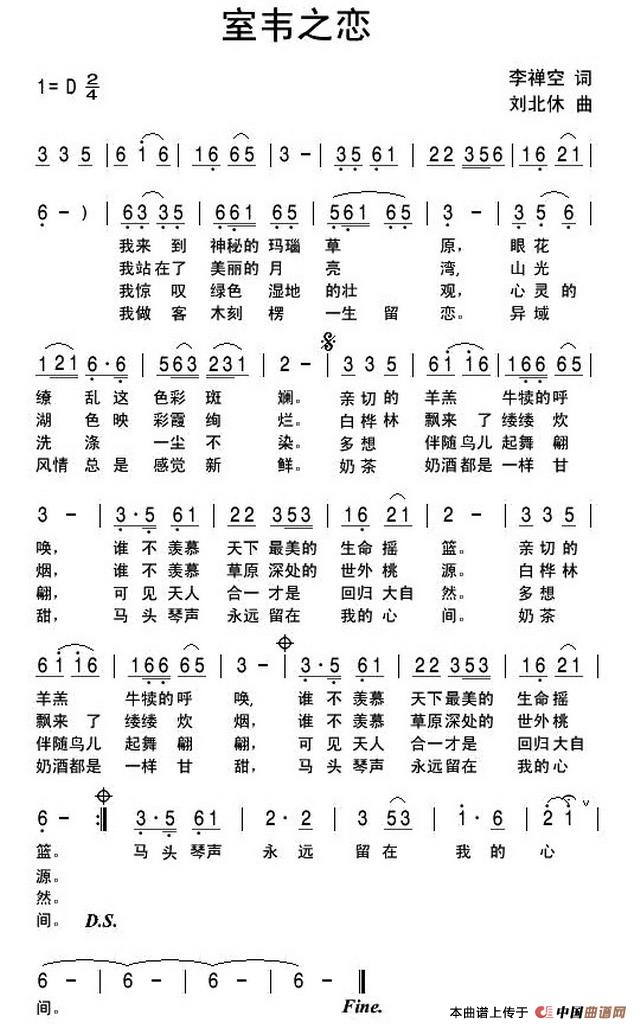 室韦之恋
1= D 2/4
李禅空 词
刘北休 曲
3 3 5 | 6 i 6 | 16 65 | 3 - | 35 61 | 22 356 | 16 21 |
6 - ) | 63 35 | 661 65 | 561 65 | 3 - | 3 5 6 |
我来 到 神秘的 玛瑙 草 原， 眼花
我站在了 美丽的 月 亮 湾， 山光
我惊 叹 绿色 湿地 的壮 观。 心灵的
我做 客 木刻 楞 一生 留 恋。 异域
121 6·6 | 563 231 | 2 - | 3 3 5 | 6i i6 | 166 65 |
缭 乱 这 色彩 斑 斓。 亲切的 羊羔 牛犊的呼
湖 色映 彩霞 绚 烂。 白桦林 飘来 了 缕缕 炊
洗 涤 一尘 不 染。 多想 伴随鸟儿 起舞 翩
风情 总 是 感觉 新 鲜。 奶茶 奶酒都是 一样 甘
3 - | 3·5 61 | 22 353 | 16 21 | 2 - | 3 3 5 |
唤， 谁 不 羡慕 天下 最美的 生命 摇 篮。 亲切的
烟， 谁 不 羡慕 草原 深处的 世外 桃 源。 白桦林
翩， 可 见 天人 合一 才是 回归 大自 然。 多想
甜， 马 头 琴声 永远 留在 我的 心 间。 奶茶
6i i6 | 166 65 | 3 - | 3·5 61 | 22 353 | 16 21 |
羊羔 牛犊的 呼 唤， 谁 不 羡慕 天下 最美的 生命 摇
飘来 了 缕缕 炊 烟， 谁 不 羡慕 草原 深处的 世外 桃
伴随鸟儿 起舞 翩 翩， 可 见 天人 合一 才是 回归 大自
奶酒都是 一样 甘 甜， 马 头 琴声 永远 留在 我的 心
6 - :| 3·5 61 | 2· 2 | 3 53 | 1· 6 | 2 i ∨ |
篮。 马 头 琴声 永 远 留 在 我 的 心
源。
然。
间。 D.S.
6 - | 6 - | 6 - | 6 - ‖
间。 Fine.
本曲谱上传于 中国曲谱网